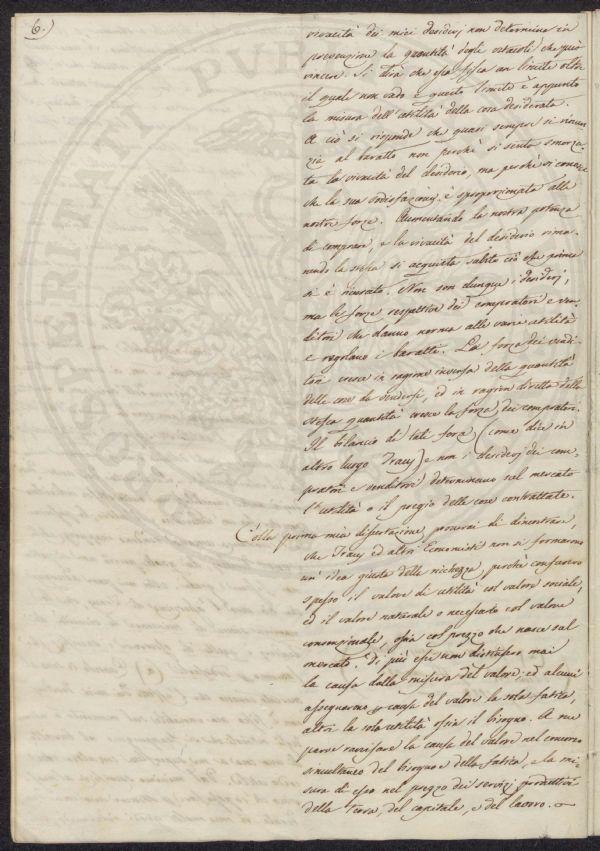 6.)
vivacità dei miei desiderj non determina in
prevenzione la quantità degli ostacoli che può
vincere. Si dirà che essa fissa un limite oltre
il quale non vado e questo limite è appunto
la misura dell'utilità della cosa desiderata.
A ciò si risponde che quasi sempre si rinun-
zia al baratto non perchè si senta smorza-
ta la vivacità del desiderio, ma perchè si conosce
che la sua sodisfazione è sproporzionata alle
nostre forze. Aumentando la nostra potenza
di comprare, e la vivacità del desiderio rima-
nendo la stessa si acquista subito ciò che prima
si è ricusato. Non son dunque i desiderj,
ma le forze respettive dei compratori e ven-
ditori che danno norma alle varie utilità
e regolano i baratti. La forza dei vendi-
tori cresce in ragione inversa della quantità
delle cose da vendersi, ed in ragion diretta della
stessa quantità cresce la forza dei compratori.
Il bilancio di tali forze (come dice in
altro luogo Tracy) e non i desiderj dei com-
pratori e venditori determinano sul mercato
l'utilità o il pregio delle cose contrattate.
Colla prima mia dissertazione procurai di dimostrare,
che Tracy ed altri Economisti non si formarono
un'idea giusta della ricchezza, perchè confusero
spesso il valore di utilità col valore sociale,
ed il valore naturale o necessario col valore
convenzionale, ossia col prezzo che nasce sul
mercato. Di più essi non distinsero mai
la causa dalla misura del valore: ed alcuni
assegnarono p causa del valore la sola fatica,
altri la sola utilità ossia il bisogno. A me
parve ravvisare la causa del valore nel concorso
simultaneo del bisogno e della fatica, e la mi-
sura di esso nel prezzo dei servizj produttivi
della terra, del capitale, e del lavoro.